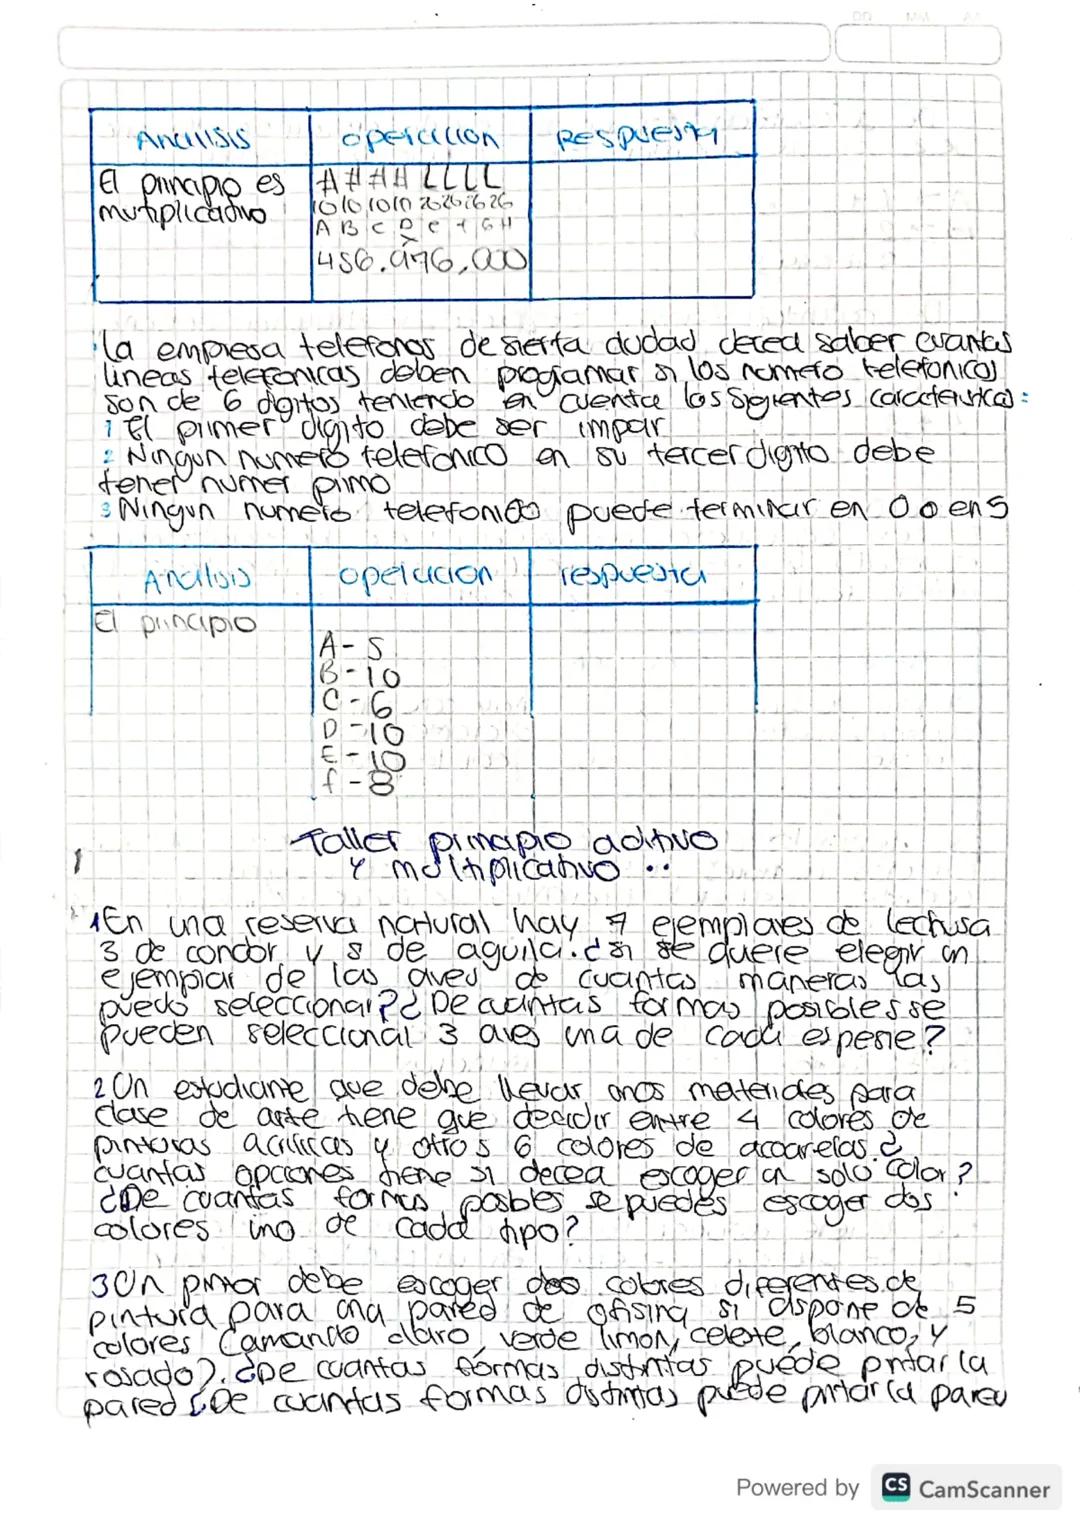 DD MM AA
Analisis operacion Respuesta
El principio es
mutiplicativo
# # # # L L L L
10 10 10 10 26 26 26 26
A B C D e f G H
456.976,000
La empresa telefonos de sierta ciudad decea saber cuantas
lineas telefonicas deben programar si los numero telefonicos
son de 6 digitos teniendo en cuenta los sigientes caracteristicas:
1 El primer digito debe ser impar
2 Ningun numero telefonico en su tercer digito debe
tener numer pimo
3 Ningun numero telefonico puede terminar en 0 o en 5
Analisis operacion respuesta
El principio
A - 5
B - 10
C - 6
D - 10
E - 10
f - 8
Taller principio aditivo
y multiplicativo ..
1 En una reserva natural hay 7 ejemplares de lechusa
3 de condor y 8 de aguila. ¿si se quere elegir un
ejemplar de las aves de cuantas maneras las
puedo seleccionar? ¿De cuantas formas posibles se
pueden seleccional 3 aves una de cada espesie?
2 Un estudiante que debe llevar unos materiales para
clase de arte tiene que decidir entre 4 colores de
pinturas acrilicas y otros 6 colores de acoarelas. ¿
cuantas opciones tiene si decea escoger un solo color?
¿De cuantas formas posbles se puedes escoger dos
colores uno de cada tipo?
3 Un pintor debe escoger dos colores diferentes de
pintura para una pared de ofisina si dispone de 5
colores (amarillo claro, verde limon, celeste, blanco, y
rosado). ¿De cuantas formas distintas puede pintar la
pared ¿De cuantas formas distintas puede pintar la pared
Powered by CS CamScanner